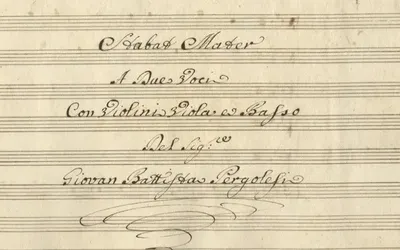 Stabat Mater
A Due Voci
Con Violini Viola e Basso
Del Sig:re
Giovan Battista Pergolesi